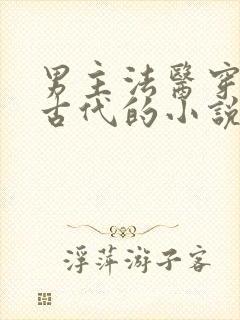 男主法醫穿
古代的小說
浮萍游子客